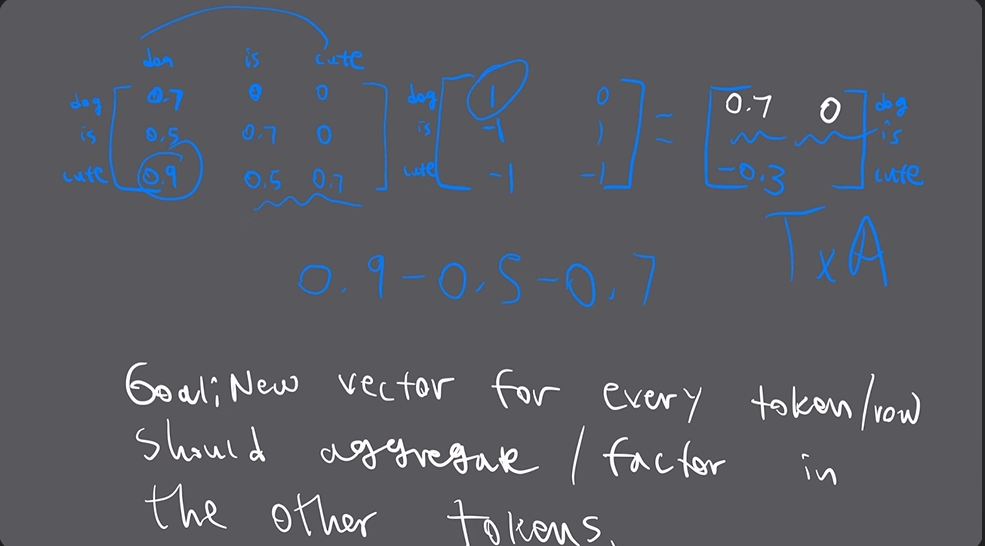 dog is cute
dog 0.7 0 0 dog 1 0 = 0.7 0 dog
is 0.5 0.7 0 is -1 1 is
cute 0.9 0.5 0.7 cute -1 -1 -0.3 cute
T x A
0.9-0.5-0.7
Goal; New vector for every token/row
should aggregate / factor in
the other tokens.